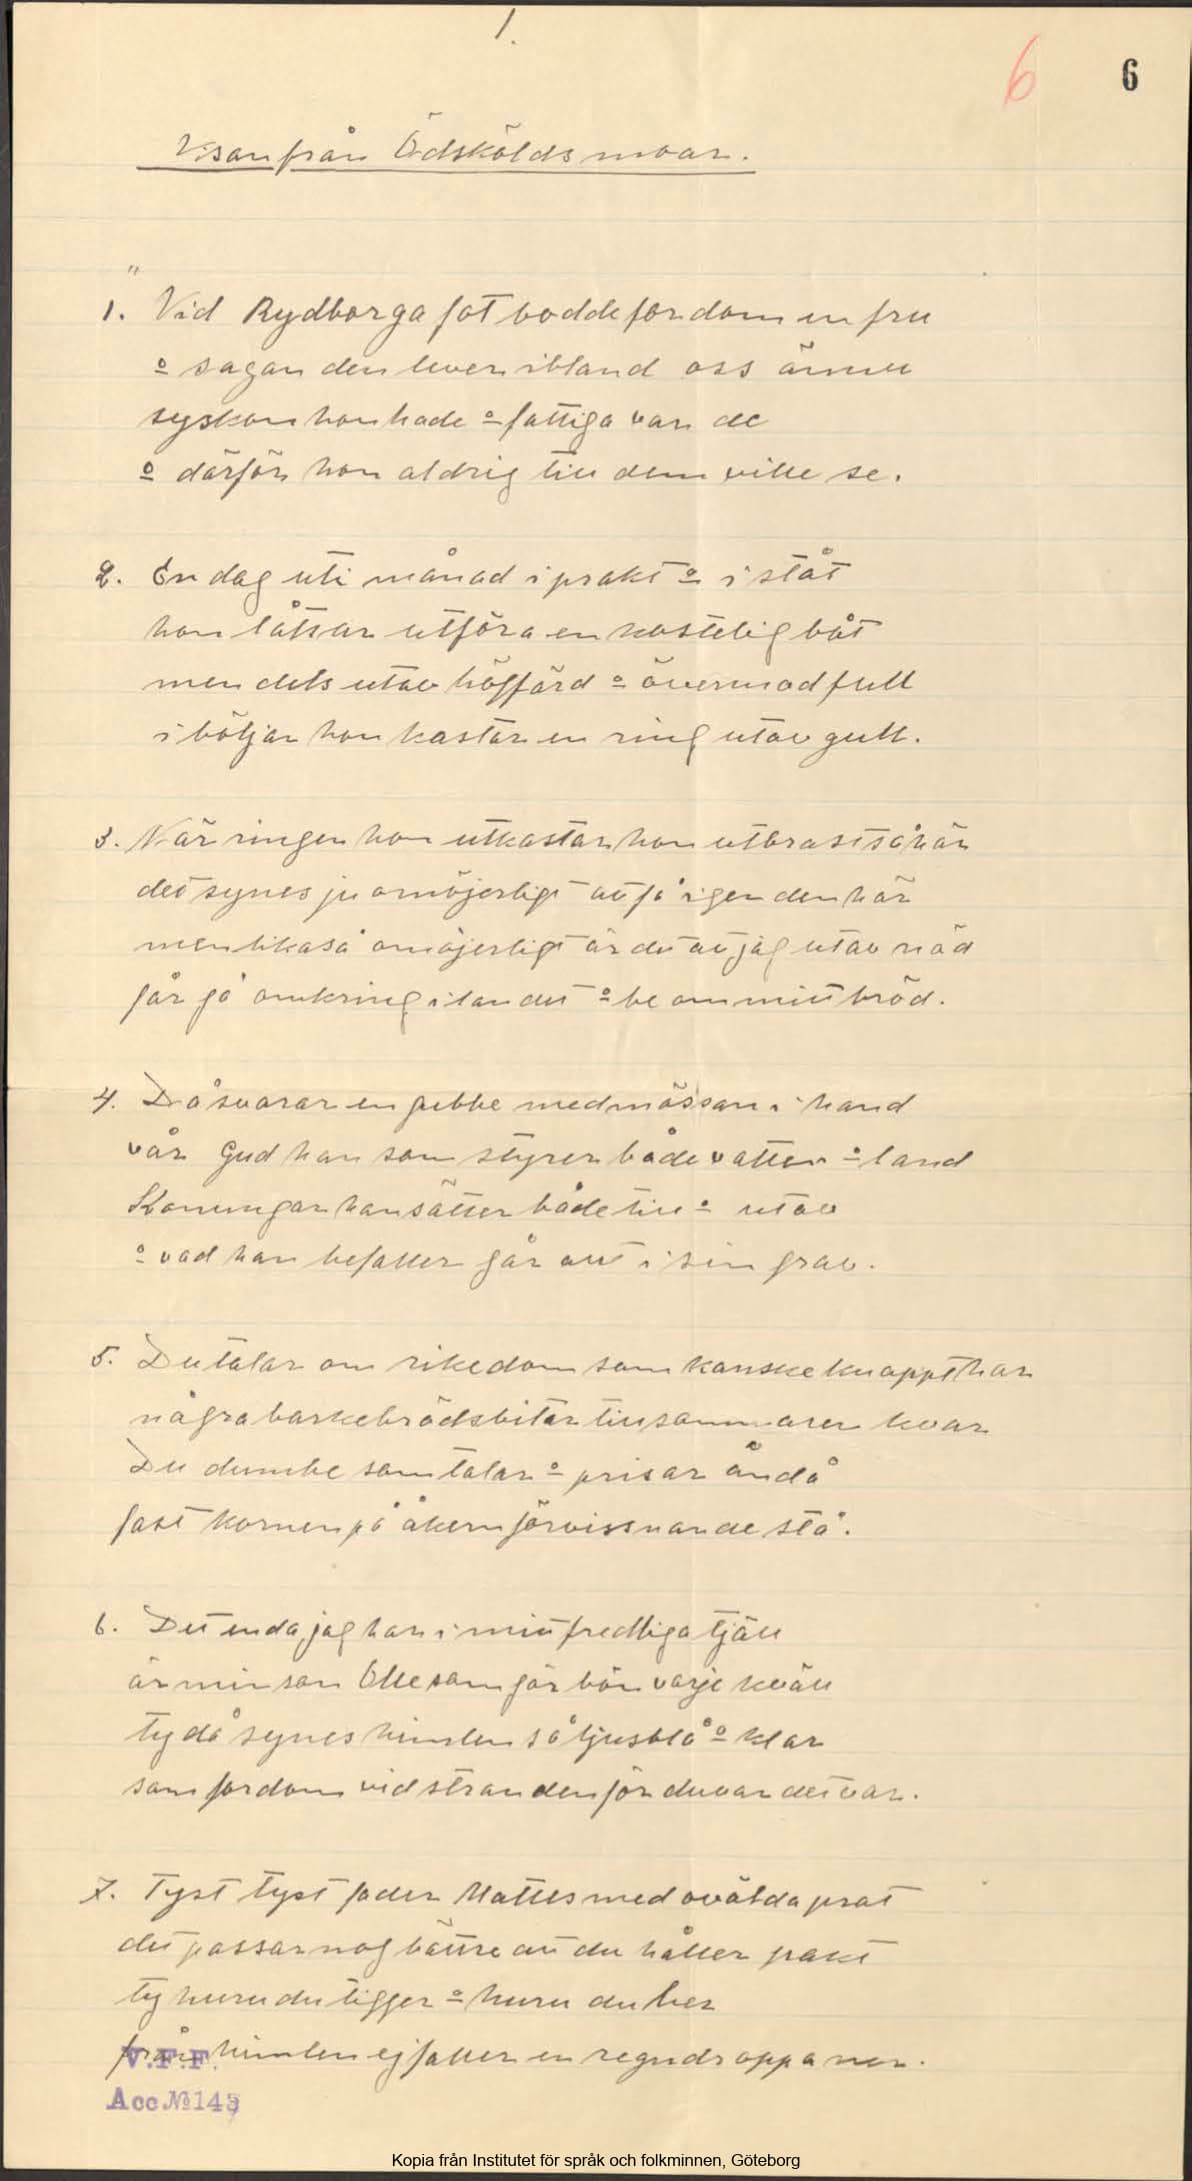 1.
6 6
Visan från Ödsköldsmoar.
"
1. Vid Rydborga fot bodde fordom en fru
o sagan den lever ibland oss ännu
syskon hon hade o fattiga var de
o därför hon aldrig till dem ville se.
2. En dag uti månad i prakt o i ståt
hon låtsar utföra en kostelig båt
men dels utav högfärd o övermod full
i böljan hon kastar en ring utav gull.
3. När ringen hon utkastar hon utbrast så här
det synes ju omöjerligt att få igen den här
men likaså omöjerligt är det att jag utav nöd
får gå omkring i landet o be om mitt bröd.
4. Då svarar en gubbe med mössan i hand
vår Gud han som styrer både vatten o land
Konungar han sätter både till o utav
o vad han befaller går allt i sin grav.
5. Du talar om rikedom som kanske knappt har
några barkebrödsbitar till sommaren kvar
Du dumbe som talar o prisar ändå
fast kornen på åkern förvissnande stå.
6. Det enda jag har i mitt fredliga tjäll
är min son Olle som gör bön varje kväll
ty då synes himlen så ljusblå o klar
som fordom vid stranden för duvan det var.
7. Tyst tyst fader Mattes med ovälda prat
det passar nog bättre att du håller pakt
ty huru du tigger o huru du ber
från himlen ej faller en regndroppa ner.
V.F.F.
Acc № 143
Kopia från Institutet för språk och folkminnen, Göteborg